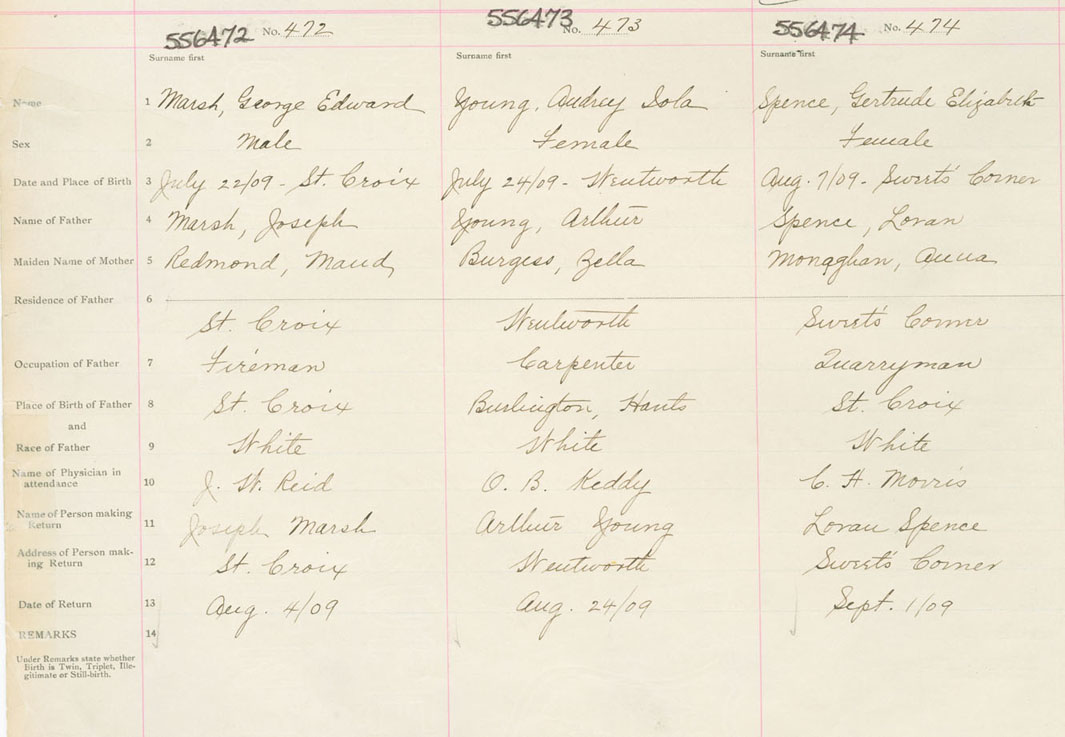 556472 No. 472 556473 No. 473 556474 No. 474
Surname first Surname first Surname first
Name 1 Marsh, George Edward Young, Audrey Iola Spence, Gertrude Elizabeth
Sex 2 Male Female Female
Date and Place of Birth 3 July 22/09 - St. Croix July 24/09 - Wentworth Aug. 7/09 - Sweet's Corner
Name of Father 4 Marsh, Joseph Young, Arthur Spence, Loran
Maiden Name of Mother 5 Redmond, Maud Burgess, Zella Monaghan, Anna
Residence of Father 6
St. Croix Wentworth Sweet's Corner
Occupation of Father 7 Fireman Carpenter Quarryman
Place of Birth of Father 8 St. Croix Burlington, Hants St. Croix
and
Race of Father 9 White White White
Name of Physician in
attendance 10 J. W. Reid O. B. Keddy C. H. Morris
Name of Person making
Return 11 Joseph Marsh Arthur Young Loran Spence
Address of Person mak-
ing Return 12 St. Croix Wentworth Sweet's Corner
Date of Return 13 Aug. 4/09 Aug. 24/09 Sept. 1/09
REMARKS 14
Under Remarks state whether
Birth is Twin, Triplet, Ille-
gitimate or Still-birth.